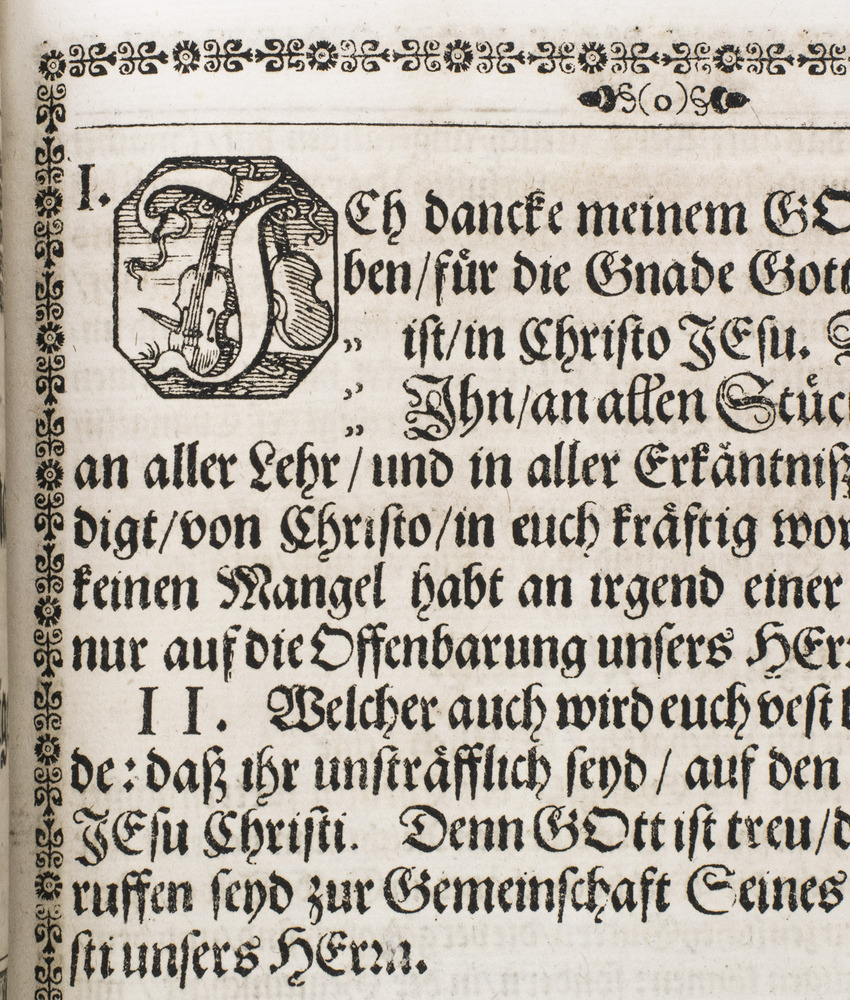 (o)
I. JCh dancke meinem GO
ben/für die Gnade Gott
„ ist/in Christo JEsu.
„ Jhn/an allen Stüc
„
an aller Lehr/und in aller Erkäntniß
digt/von Christo/in euch kräftig wor
keinen Mangel habt an irgend einer
nur auf die Offenbarung unsers HEr
II. Welcher auch wird euch vest b
de: daß ihr unsträfflich seyd/ auf den
JEsu Christi. Denn GOtt ist treu/d
ruffen seyd zur Gemeinschaft Seines
sti unsers HErrn.